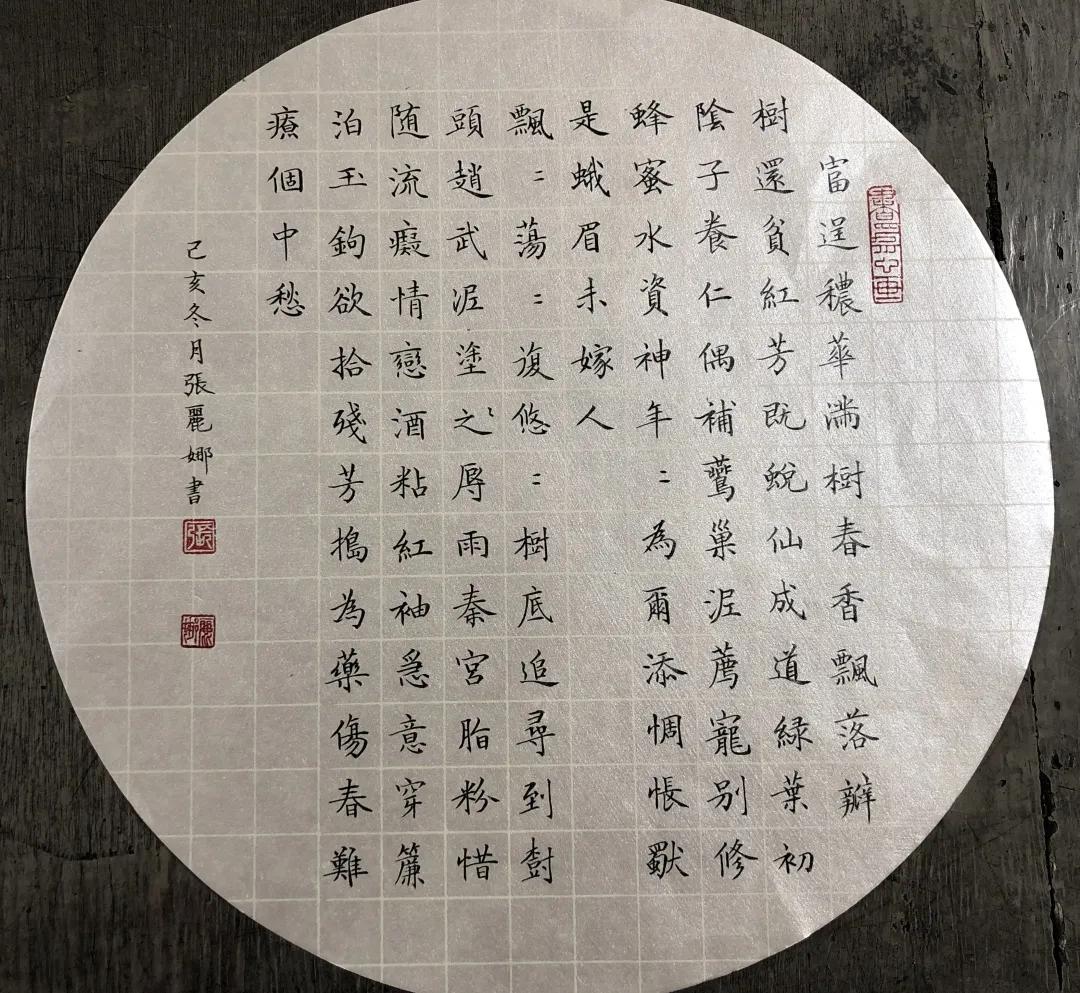 富逞穠華滿樹春香飄落瓣
樹還貧紅芳既蛻仙成道綠葉初
陰子養仁偶補鶯巢泥薦寵別修
蜂蜜水資神年二為爾添惆悵獸
是蛾眉未嫁人
飄二蕩二復悠二樹底追尋到樹
頭趙武泥塗之辱雨秦宮脂粉惜
随流癡情戀酒粘紅袖急意穿簾
泊玉鉤欲拾殘芳搗為藥傷春難
療個中愁
己亥冬月張麗娜書
張
麗娜